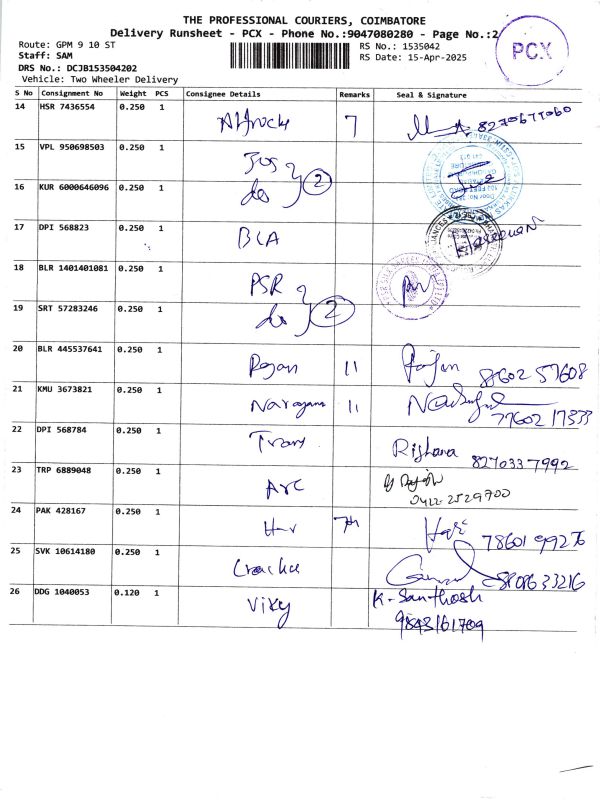 THE PROFESSIONAL COURIERS, COIMBATORE
Delivery Runsheet - PCX - Phone No.:9047080280 - Page No.:2/
Route: GPM 9 10 ST
Staff: SAM
DRS No.: DCJB153504202
Vehicle: Two Wheeler Delivery
RS No.: 1535042
RS Date: 15-Apr-2025
PCX
S No Consignment No Weight PCS Consignee Details Remarks Seal & Signature
14 HSR 7436554 0.250 1 7
15 VPL 950698503 0.250 1
16 KUR 6000646096 0.250 1 do 2
17 DPI 568823 0.250 1 BCA
18 BLR 1401401081 0.250 1 PSR
19 SRT 57283246 0.250 1 do 2
20 BLR 445537641 0.250 1 Rajan 11 Rajan 88602 57608
21 KMU 3673821 0.250 1 Narayana 11 77602 17333
22 DPI 568784 0.250 1 Rishana 8270337992
23 TRP 6889048 0.250 1 ARC 0422-2529700
24 PAK 428167 0.250 1 Hari 7th Hari 78601 99276
25 SVK 10614180 0.250 1
26 DDG 1040053 0.120 1 Viky K-Santhosh
9843161709